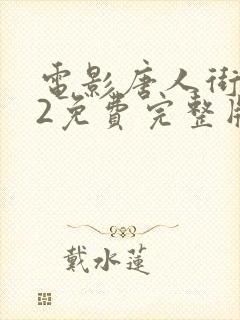 電影唐人街
2免費完整版
戴水蓮